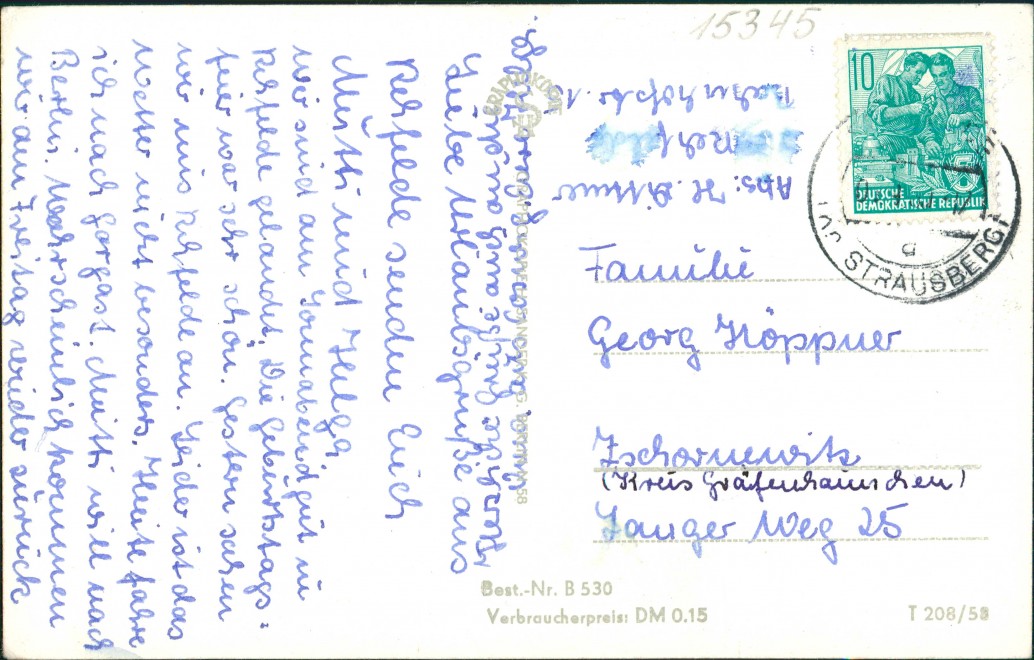 15345
10
DEUTSCHE
DEMOKRATISCHE REPUBLIK
STRAUSBERG
a
Abs: H.
Rehfelde
Bahnhofstr. 1
Familie
Georg Höppner
Zschornewitz
(Kreis Gräfenhainichen)
Janger Weg 25
Best.-Nr. B 530
Verbraucherpreis: DM 0.15
T 208/58
Liebe Urlaubsgrüße aus
Rehfelde senden Euch
Mutti und Helga
wir sind am Sonnabend gut in
Rehfelde gelandet. Die Geburtstags-
feier war sehr schön. Gestern sahen
wir uns Rehfelde an. Leider ist das
Wetter nicht besonders. Heute fahre
ich nach Gorgast. Mutti will nach
Berlin. Wahrscheinlich kommen
wir am Freitag wieder zurück
Herzliche Grüße